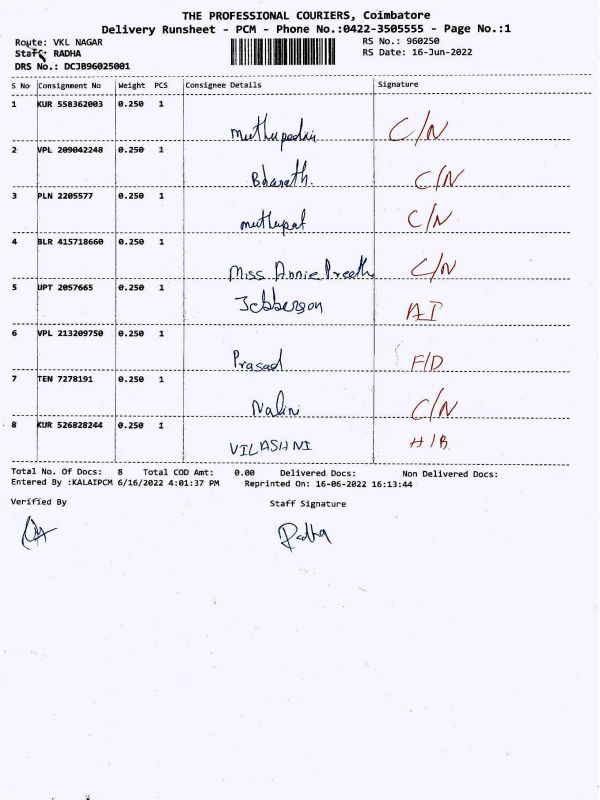 THE PROFESSIONAL COURIERS, Coimbatore
Delivery Runsheet - PCM - Phone No.:0422-3505555 - Page No.:1
Route: VKL NAGAR RS No.: 960250
Staff: RADHA RS Date: 16-Jun-2022
DRS No.: DCJB96025001
S No Consignment No Weight PCS Consignee Details Signature
1 KUR 558362003 0.250 1
C/N
2 VPL 209042248 0.250 1
Bharath. C/N
3 PLN 2205577 0.250 1
C/N
4 BLR 415718660 0.250 1
Miss Annie Preeth C/N
5 UPT 2057665 0.250 1
Jebberson AI
6 VPL 213209750 0.250 1
Prasad F/D
7 TEN 7278191 0.250 1
Nalin C/N
8 KUR 526828244 0.250 1
VILASHNI H/B
Total No. Of Docs: 8 Total COD Amt: 0.00 Delivered Docs: Non Delivered Docs:
Entered By :KALAIPCM 6/16/2022 4:01:37 PM Reprinted On: 16-06-2022 16:13:44
Verified By Staff Signature
Radha